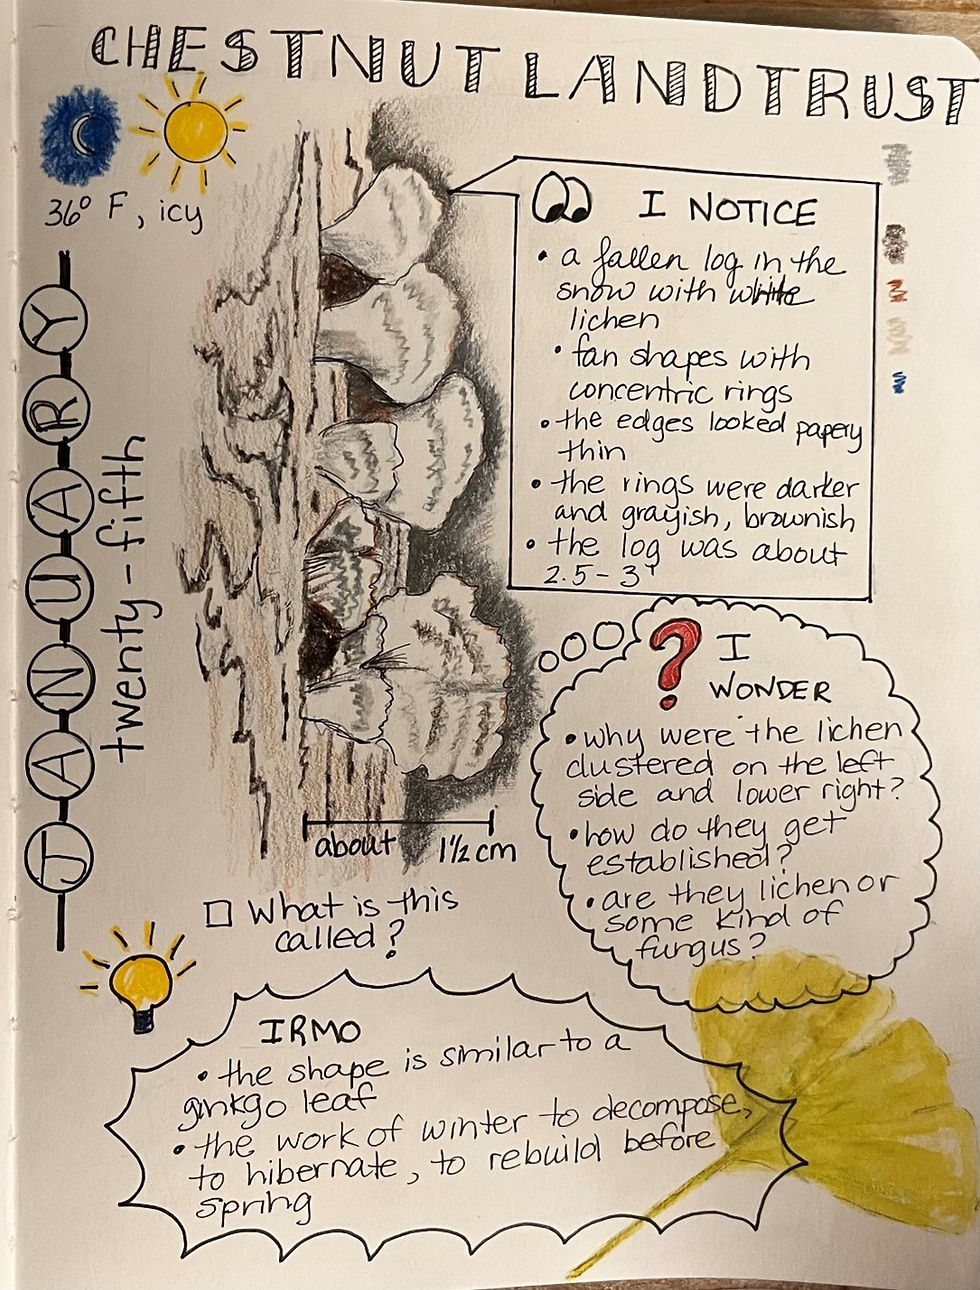 CHESTNUT LAND TRUST
36° F, icy
JANUARY
twenty-fifth
I NOTICE
• a fallen log in the
snow with white
lichen
• fan shapes with
concentric rings
• the edges looked papery
thin
• the rings were darker
and grayish, brownish
• the log was about
2.5 - 3'
? I
WONDER
• why were the lichen
clustered on the left
side and lower right?
• how do they get
established?
• are they lichen or
some kind of
fungus?
about 1½ cm
□ What is this
called?
IRMO
• the shape is similar to a
ginkgo leaf
• the work of winter to decompose,
to hibernate, to rebuild before
spring